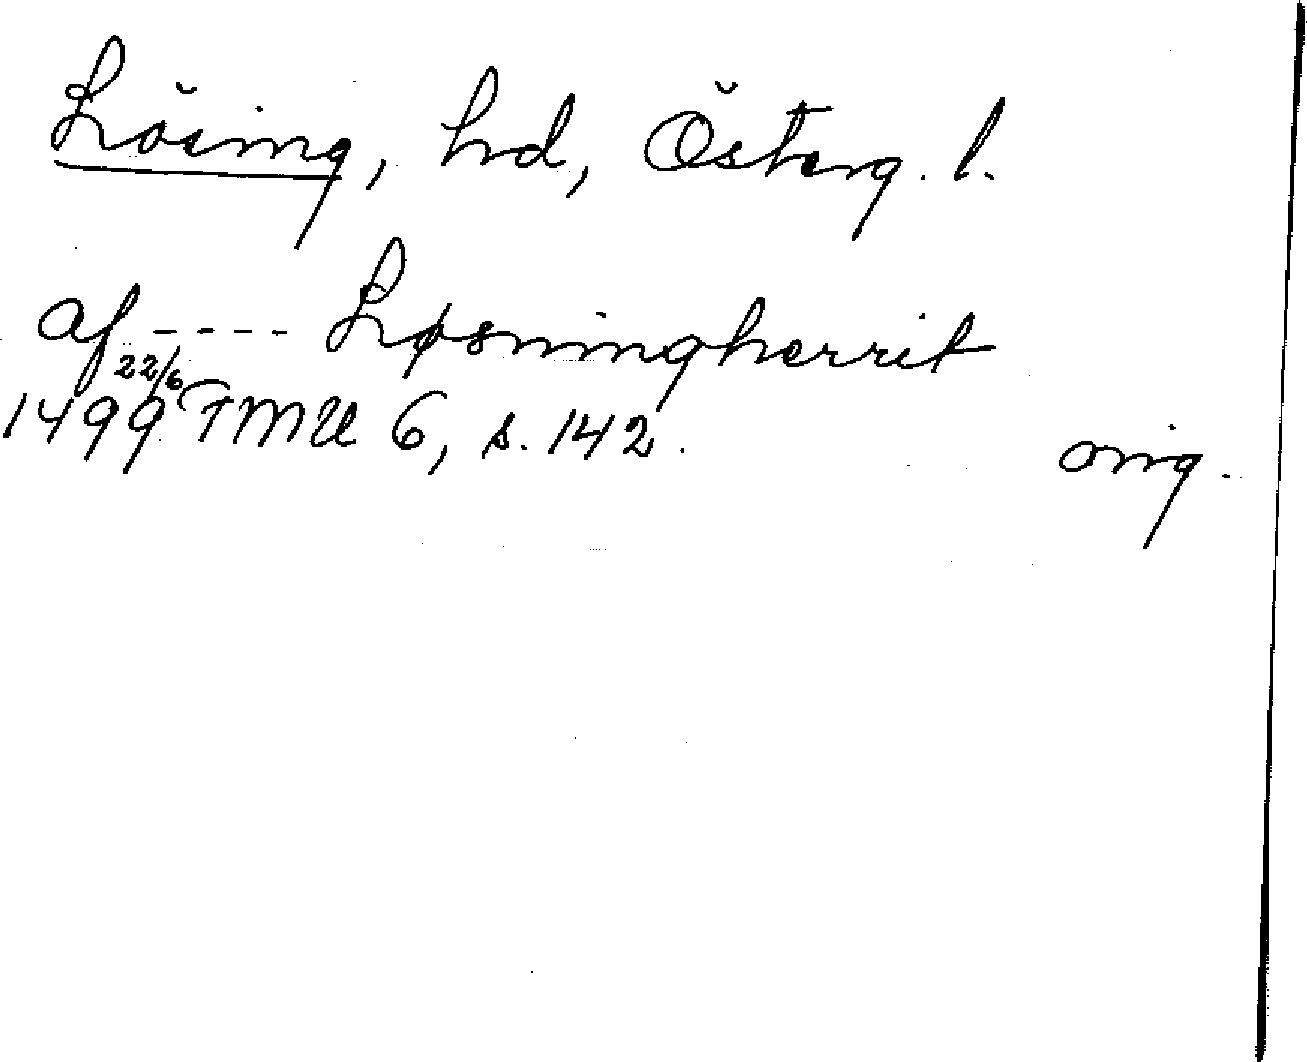 Lösing, hd, Österg. l.
af ---- Løsningherrit
22/6
1499 FMU 6, s. 142.
orig.